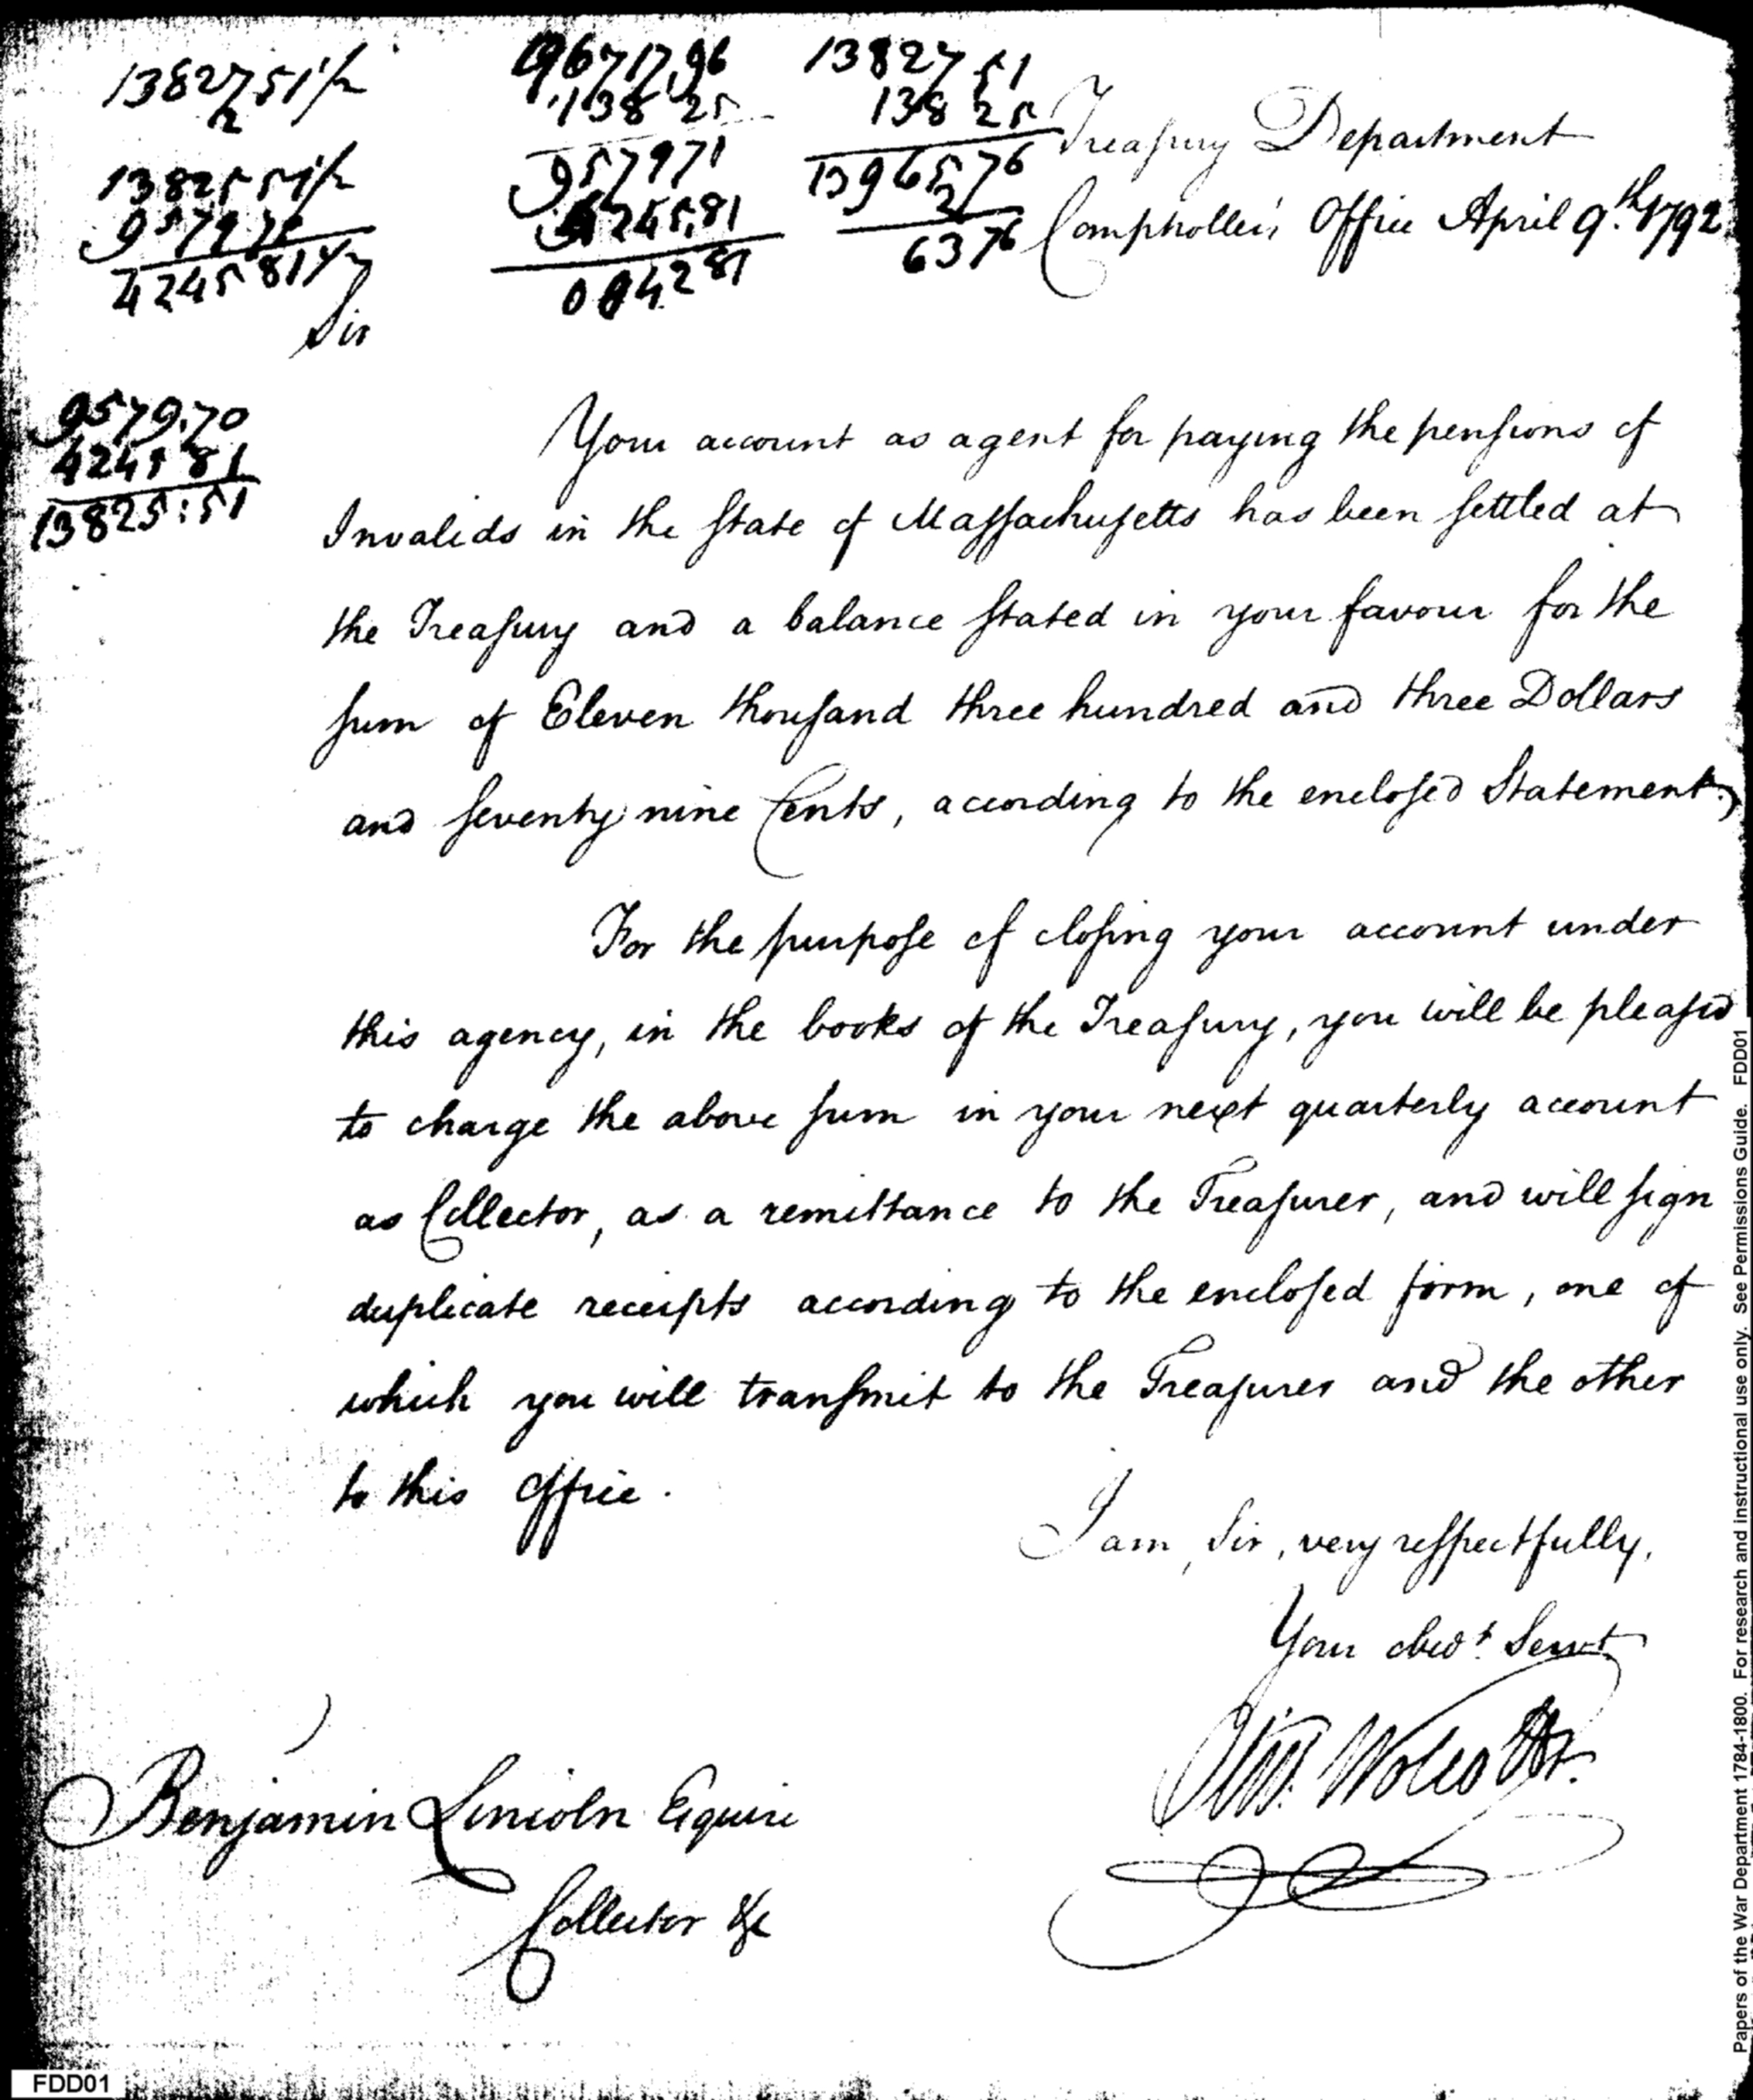 13827 51 1/2
2
13825 51 1/2
9579 70
4245 81 1/2
138 25
957971
4245,81
13827 51
138 25
13965 76
2
6376
Treasury Department
Comptroller's Office April 9.th 1792
Sir
9579.70
4245 81
13825:51
Your account as agent for paying the pensions of
Invalids in the State of Massachusetts has been settled at
the Treasury and a balance stated in your favour for the
sum of Eleven thousand three hundred and three Dollars
and seventy nine Cents, according to the enclosed Statement.
For the purpose of closing your account under
this agency, in the books of the Treasury, you will be pleased
to charge the above sum in your next quarterly account
as Collector, as a remittance to the Treasurer, and will sign
duplicate receipts according to the enclosed form, one of
which you will transmit to the Treasurer and the other
to this Office.
I am, Sir, very respectfully,
Your obed.t Servt.
Oliv. Wolcott Jr.
Benjamin Lincoln Esquire
Collector &c
Papers of the War Department 1784-1800. For research and instructional use only. See Permissions Guide. FDD01
FDD01